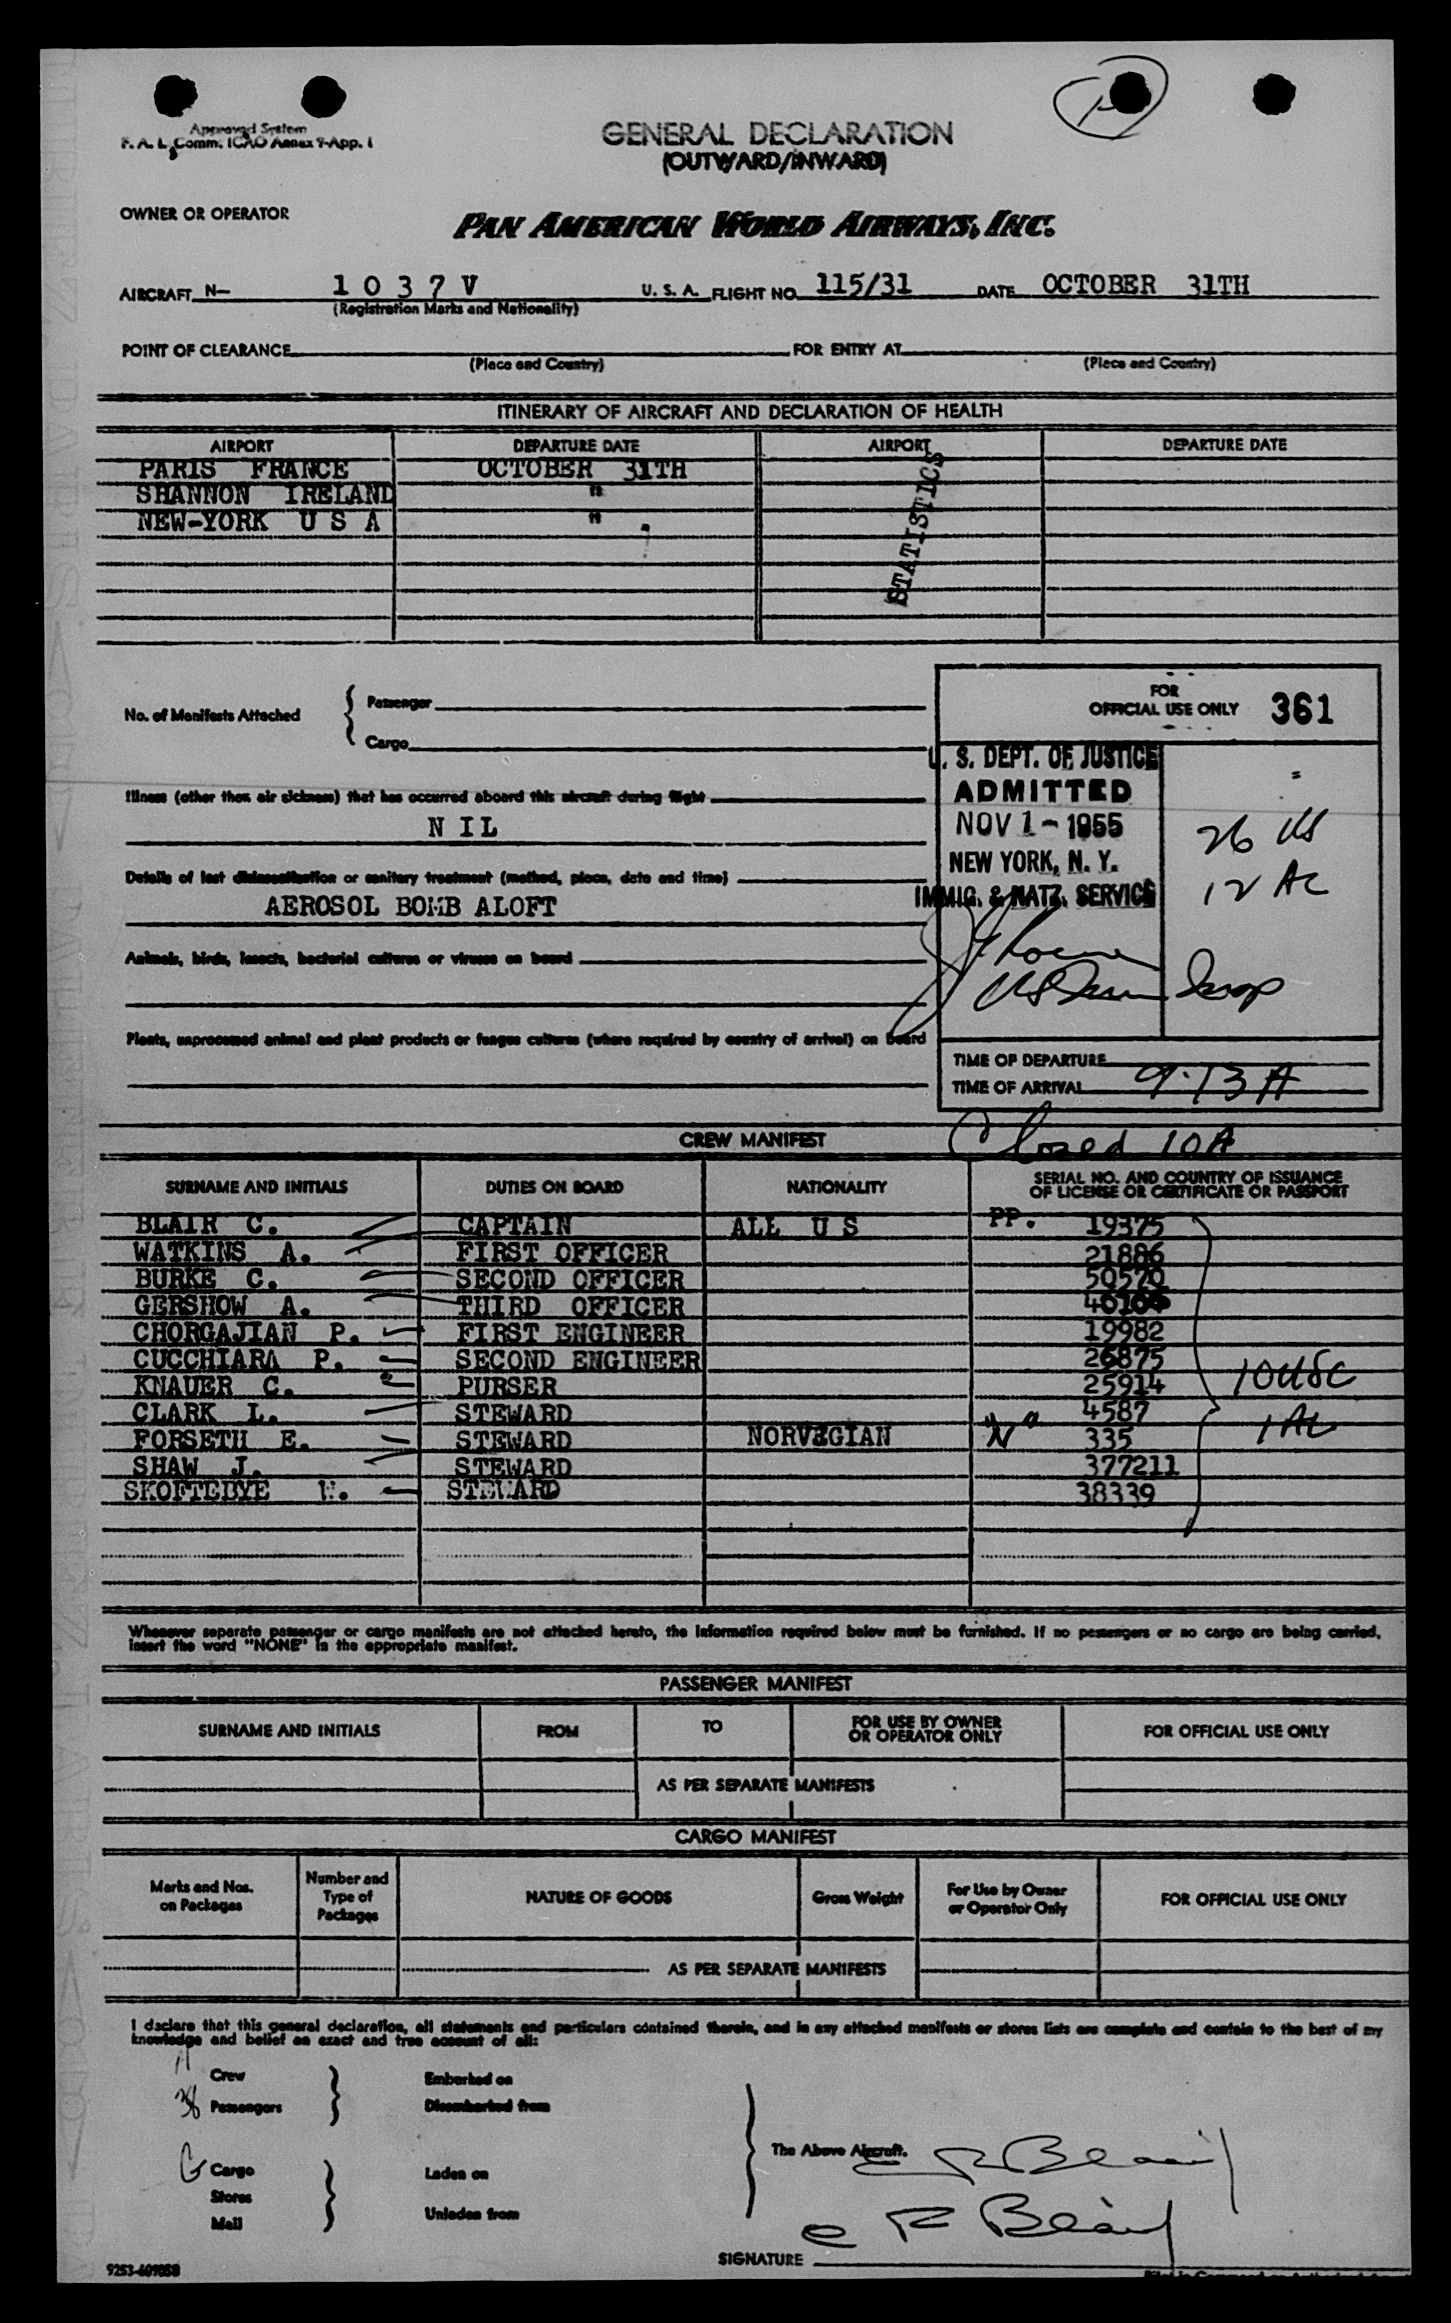 Approved System
F. A. L. Comm. ICAO Annex 9-App. 1
GENERAL DECLARATION
(OUTWARD/INWARD)
OWNER OR OPERATOR
PAN AMERICAN WORLD AIRWAYS, INC.
AIRCRAFT N- 1 0 3 7 V U. S. A. FLIGHT NO. 115/31 DATE OCTOBER 31TH
(Registration Marks and Nationality)
POINT OF CLEARANCE FOR ENTRY AT
(Place and Country) (Place and Country)
ITINERARY OF AIRCRAFT AND DECLARATION OF HEALTH
AIRPORT DEPARTURE DATE AIRPORT DEPARTURE DATE
PARIS FRANCE OCTOBER 31TH
SHANNON IRELAND "
NEW-YORK U S A "
STATISTICS
No. of Manifests Attached
Passenger
Cargo
FOR
OFFICIAL USE ONLY 361
U. S. DEPT. OF JUSTICE
ADMITTED
NOV 1 - 1955
NEW YORK, N. Y.
IMMIG. & NATZ. SERVICE
26 US
12 AL
Illness (other than air sickness) that has occurred aboard this aircraft during flight
N I L
Details of last disinsectisation or sanitary treatment (method, place, date and time)
AEROSOL BOMB ALOFT
Animals, birds, insects, bacterial cultures or viruses on board
Plants, unprocessed animal and plant products or fungus cultures (where required by country of arrival) on board
TIME OF DEPARTURE
TIME OF ARRIVAL 9:13 A
Closed 10A
CREW MANIFEST
SURNAME AND INITIALS DUTIES ON BOARD NATIONALITY SERIAL NO. AND COUNTRY OF ISSUANCE
OF LICENSE OR CERTIFICATE OR PASSPORT
BLAIR C. CAPTAIN ALL U S PP. 19375
WATKINS A. FIRST OFFICER 21886
BURKE C. SECOND OFFICER 50570
GERSHOW A. THIRD OFFICER
CHORGAJIAN P. FIRST ENGINEER 19982
CUCCHIARA P. SECOND ENGINEER 26875
KNAUER C. PURSER 25914
10 USC
CLARK L. STEWARD 4587
1 AL
FORSETH E. STEWARD NORVEGIAN 335
SHAW J. STEWARD 377211
SKOFTEBYE W. STEWARD 38339
Whenever separate passenger or cargo manifests are not attached hereto, the information required below must be furnished. If no passengers or no cargo are being carried,
insert the word "NONE" in the appropriate manifest.
PASSENGER MANIFEST
SURNAME AND INITIALS FROM TO FOR USE BY OWNER
OR OPERATOR ONLY FOR OFFICIAL USE ONLY
AS PER SEPARATE MANIFESTS
CARGO MANIFEST
Marks and Nos.
on Packages
Number and
Type of
Packages
NATURE OF GOODS
Gross Weight
For Use by Owner
or Operator Only
FOR OFFICIAL USE ONLY
AS PER SEPARATE MANIFESTS
I declare that this general declaration, all statements and particulars contained therein, and in any attached manifests or stores lists are complete and contain to the best of my
knowledge and belief an exact and true account of all:
11 Crew Embarked on
38 Passengers Disembarked from
The Above Aircraft. C R Blair
Cargo Laden on
Stores
Mail Unladen from
C R Blair
SIGNATURE
9253-609058